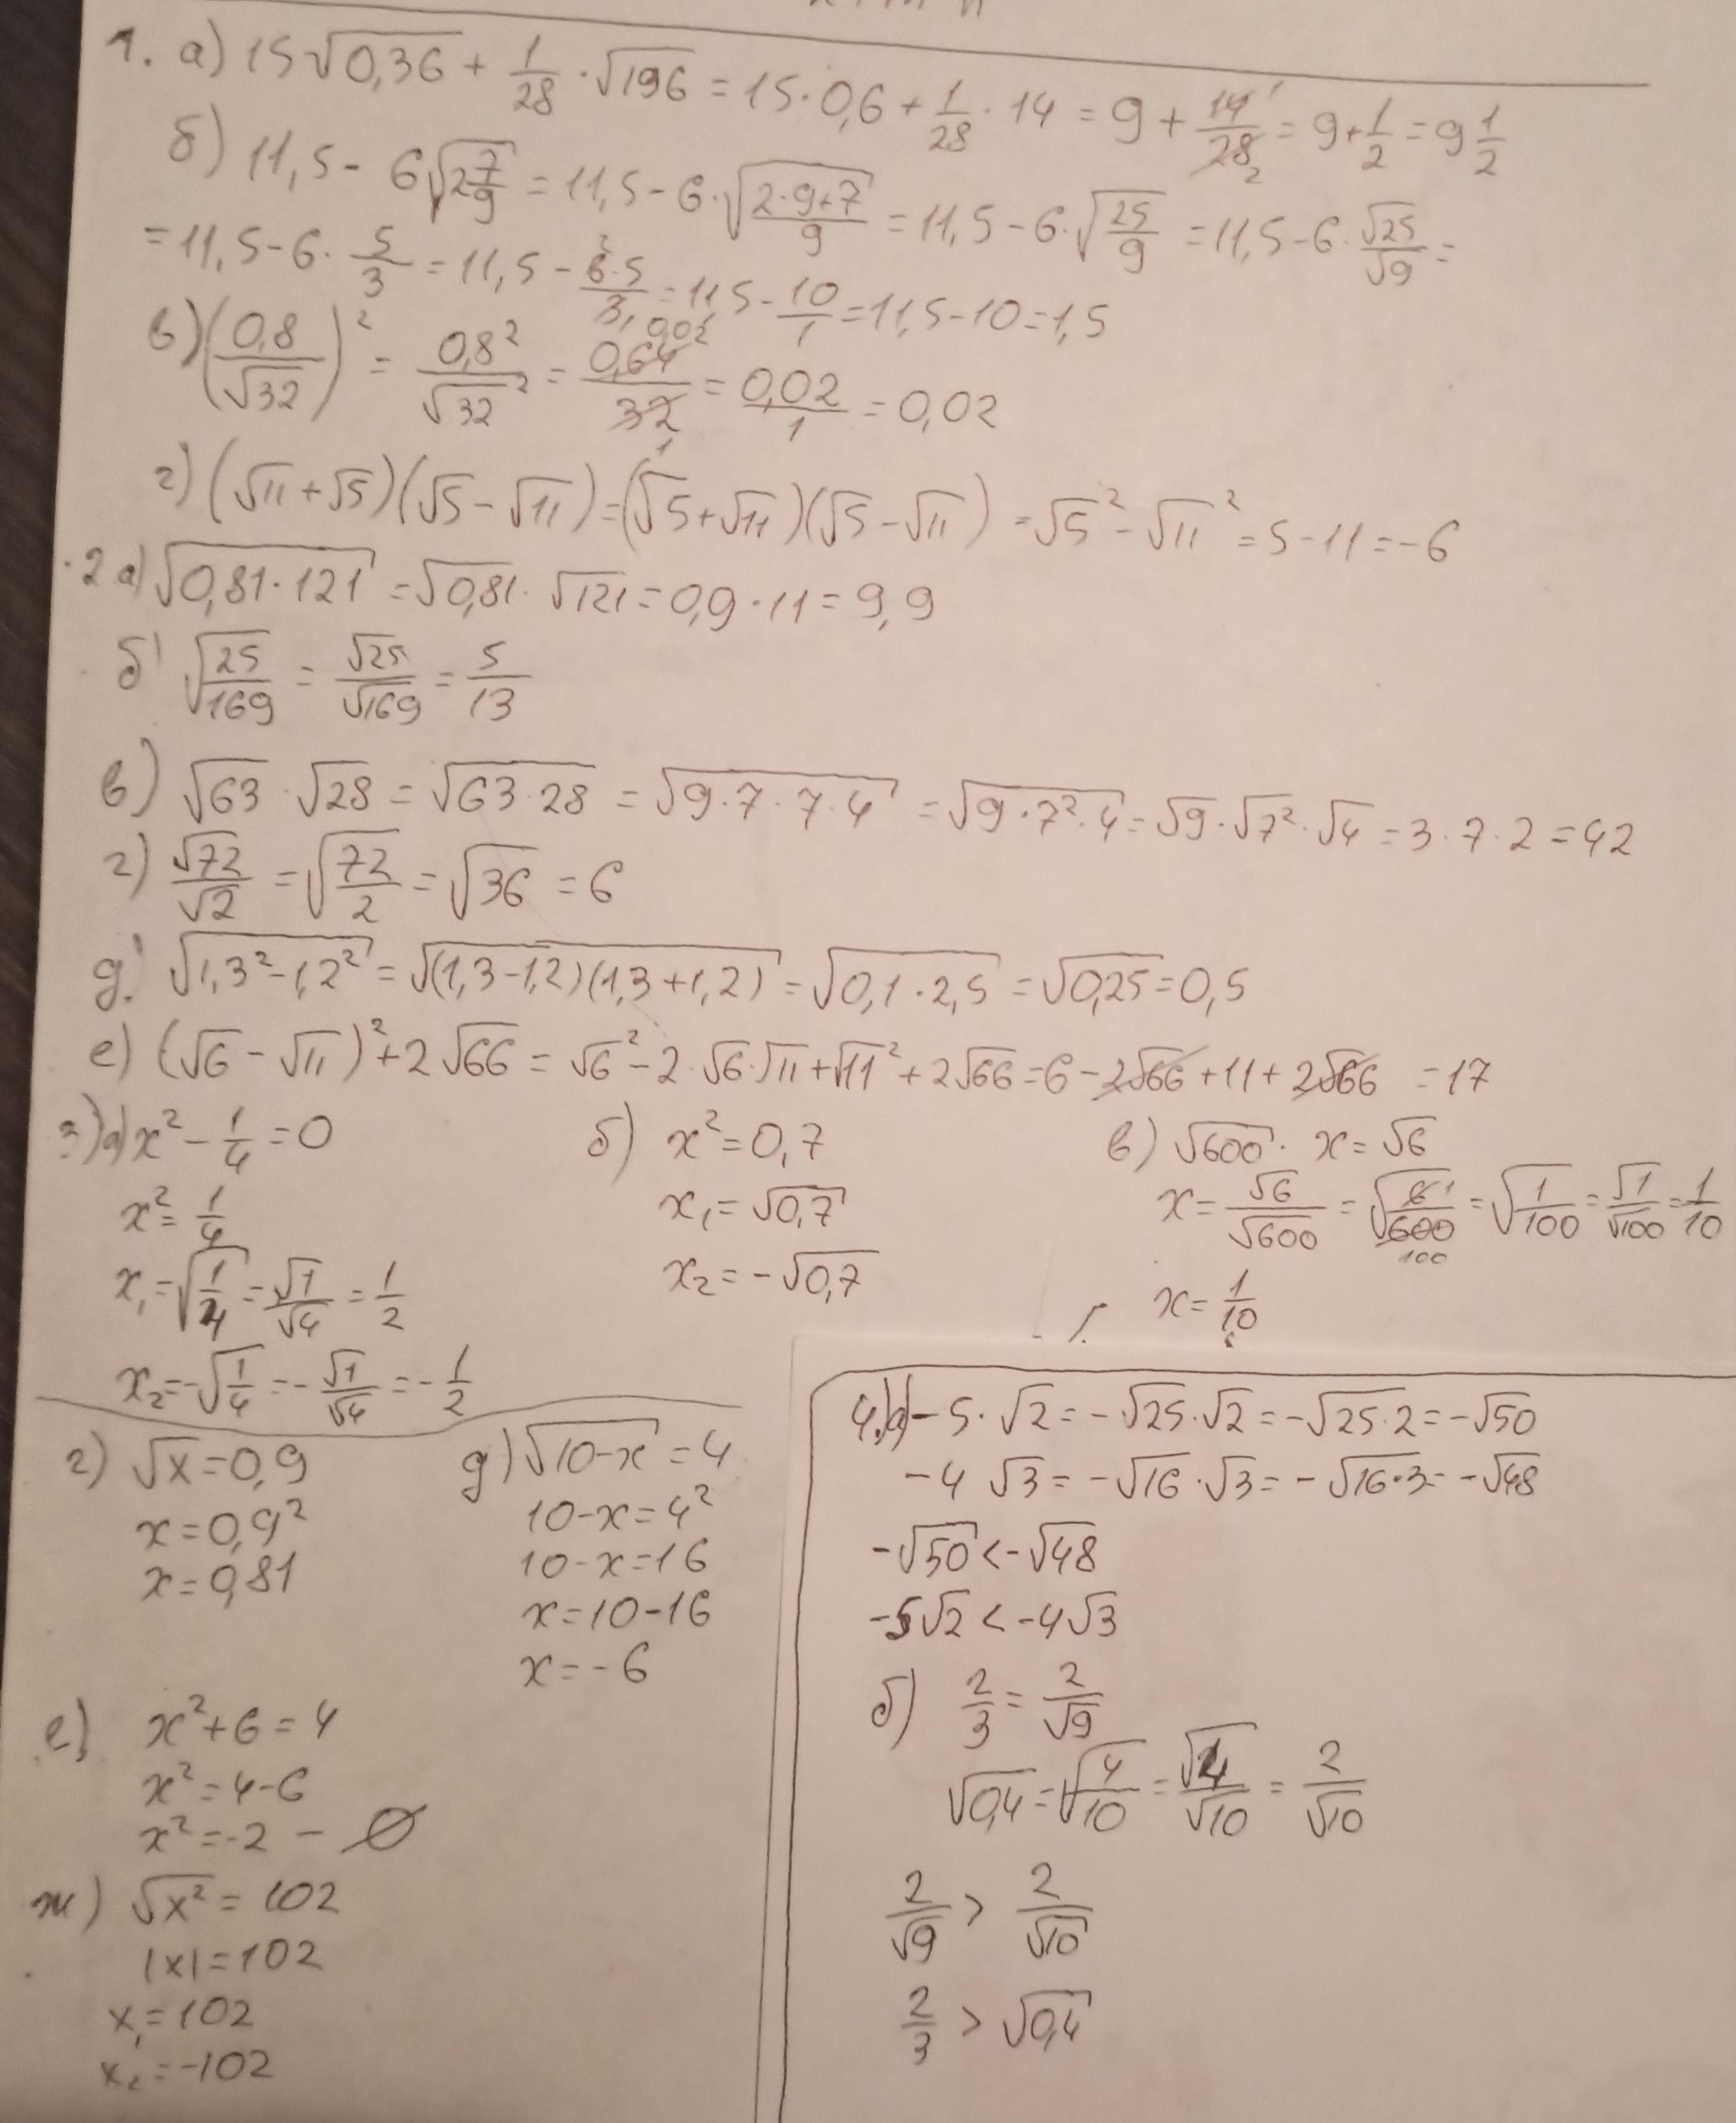 1. а) 15√0,36 + 1/28 · √196 = 15 · 0,6 + 1/28 · 14 = 9 + 14/28 = 9 + 1/2 = 9 1/2
б) 11,5 - 6√(2 7/9) = 11,5 - 6 · √((2·9+7)/9) = 11,5 - 6 · √(25/9) = 11,5 - 6 · √25/√9 =
= 11,5 - 6 · 5/3 = 11,5 - (6·5)/3 = 11,5 - 10/1 = 11,5 - 10 = 1,5
в) (0,8/√32)² = 0,8²/√32² = 0,64/32 = 0,02/1 = 0,02
г) (√11 + √5)(√5 - √11) = (√5 + √11)(√5 - √11) = √5² - √11² = 5 - 11 = -6
2 а) √(0,81 · 121) = √0,81 · √121 = 0,9 · 11 = 9,9
б) √(25/169) = √25/√169 = 5/13
в) √63 · √28 = √(63·28) = √(9·7·7·4) = √(9·7²·4) = √9 · √7² · √4 = 3 · 7 · 2 = 42
г) √72/√2 = √(72/2) = √36 = 6
д) √(1,3² - 1,2²) = √((1,3-1,2)(1,3+1,2)) = √(0,1 · 2,5) = √0,25 = 0,5
е) (√6 - √11)² + 2√66 = √6² - 2·√6·√11 + √11² + 2√66 = 6 - 2√66 + 11 + 2√66 = 17
3) а) x² - 1/4 = 0
x² = 1/4
x₁ = √(1/4) = √1/√4 = 1/2
x₂ = -√(1/4) = -√1/√4 = -1/2
б) x² = 0,7
x₁ = √0,7
x₂ = -√0,7
в) √600 · x = √6
x = √6/√600 = √(6/600) = √(1/100) = √1/√100 = 1/10
x = 1/10
г) √x = 0,9
x = 0,9²
x = 0,81
д) √(10-x) = 4
10 - x = 4²
10 - x = 16
x = 10 - 16
x = -6
е) x² + 6 = 4
x² = 4 - 6
x² = -2 - ∅
ж) √x² = 102
|x| = 102
x₁ = 102
x₂ = -102
4.) а) -5 · √2 = -√25 · √2 = -√(25·2) = -√50
-4 √3 = -√16 · √3 = -√(16·3) = -√48
-√50 < -√48
-5√2 < -4√3
б) 2/3 = 2/√9
√0,4 = √(4/10) = √4/√10 = 2/√10
2/√9 > 2/√10
2/3 > √0,4